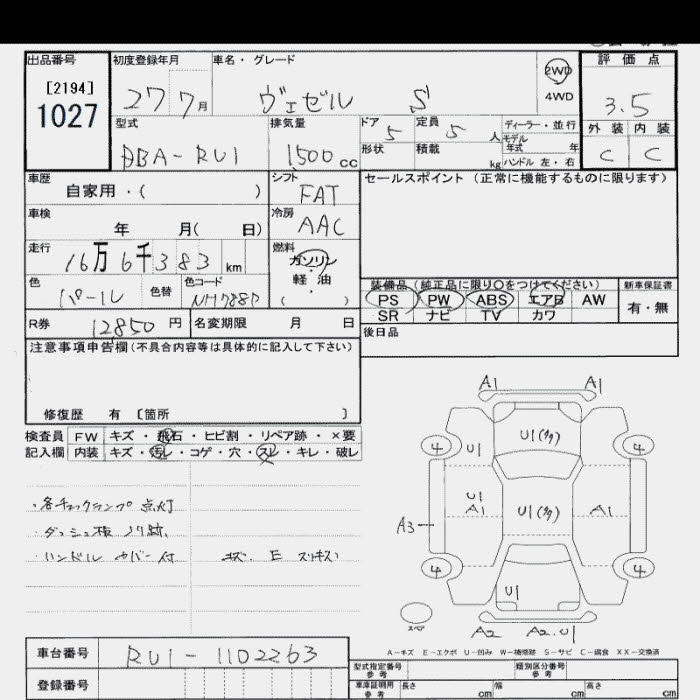 出品番号 初度登録年月 車名・グレード 評価点
[2194]
1027
27 7月 ヴェゼル S 2WD 4WD 3.5
型式 排気量 ドア 定員 ディーラー・並行 外装 内装
DBA-RU1 1500cc 5 5人 モデル年式 年 C C
形状 積載 kg ハンドル 左・右
車歴 シフト セールスポイント (正常に機能するものに限ります)
自家用・( ) FAT
車検 冷房
年 月( 日) AAC
走行 燃料
16万6千383km ガソリン・軽油
( )
色 色替 色コード 装備品 (純正品に限り○をつけてください) 新車保証書
パール NH788P PS PW ABS エアB AW 有・無
SR ナビ TV カワ
R券 12850円 名変期限 月 日 後日品
注意事項申告欄(不具合内容等は具体的に記入して下さい)
修復歴 有 [箇所 ]
検査員 FW キズ・飛石・ヒビ割・リペア跡・×要
記入欄 内装 キズ・汚レ・コゲ・穴・スレ・キレ・破レ
・各チェックランプ点灯
・ダッシュ板 ノリ跡
・ハンドル カバー付 キズ E スリキズ
A1 A1
U1(多)
4 U1 4
U1
A1 U1(多) A1
A3
4 4
U1
スペア A2 A2.U1
A-キズ E-エクボ U-凹み W-補修跡 S-サビ C-腐食 XX-交換済
車台番号 RU1-1102263
型式指定番号 参考 類別区分番号 参考
登録番号 車庫証明用 参考 長さ cm 幅 cm 高さ cm